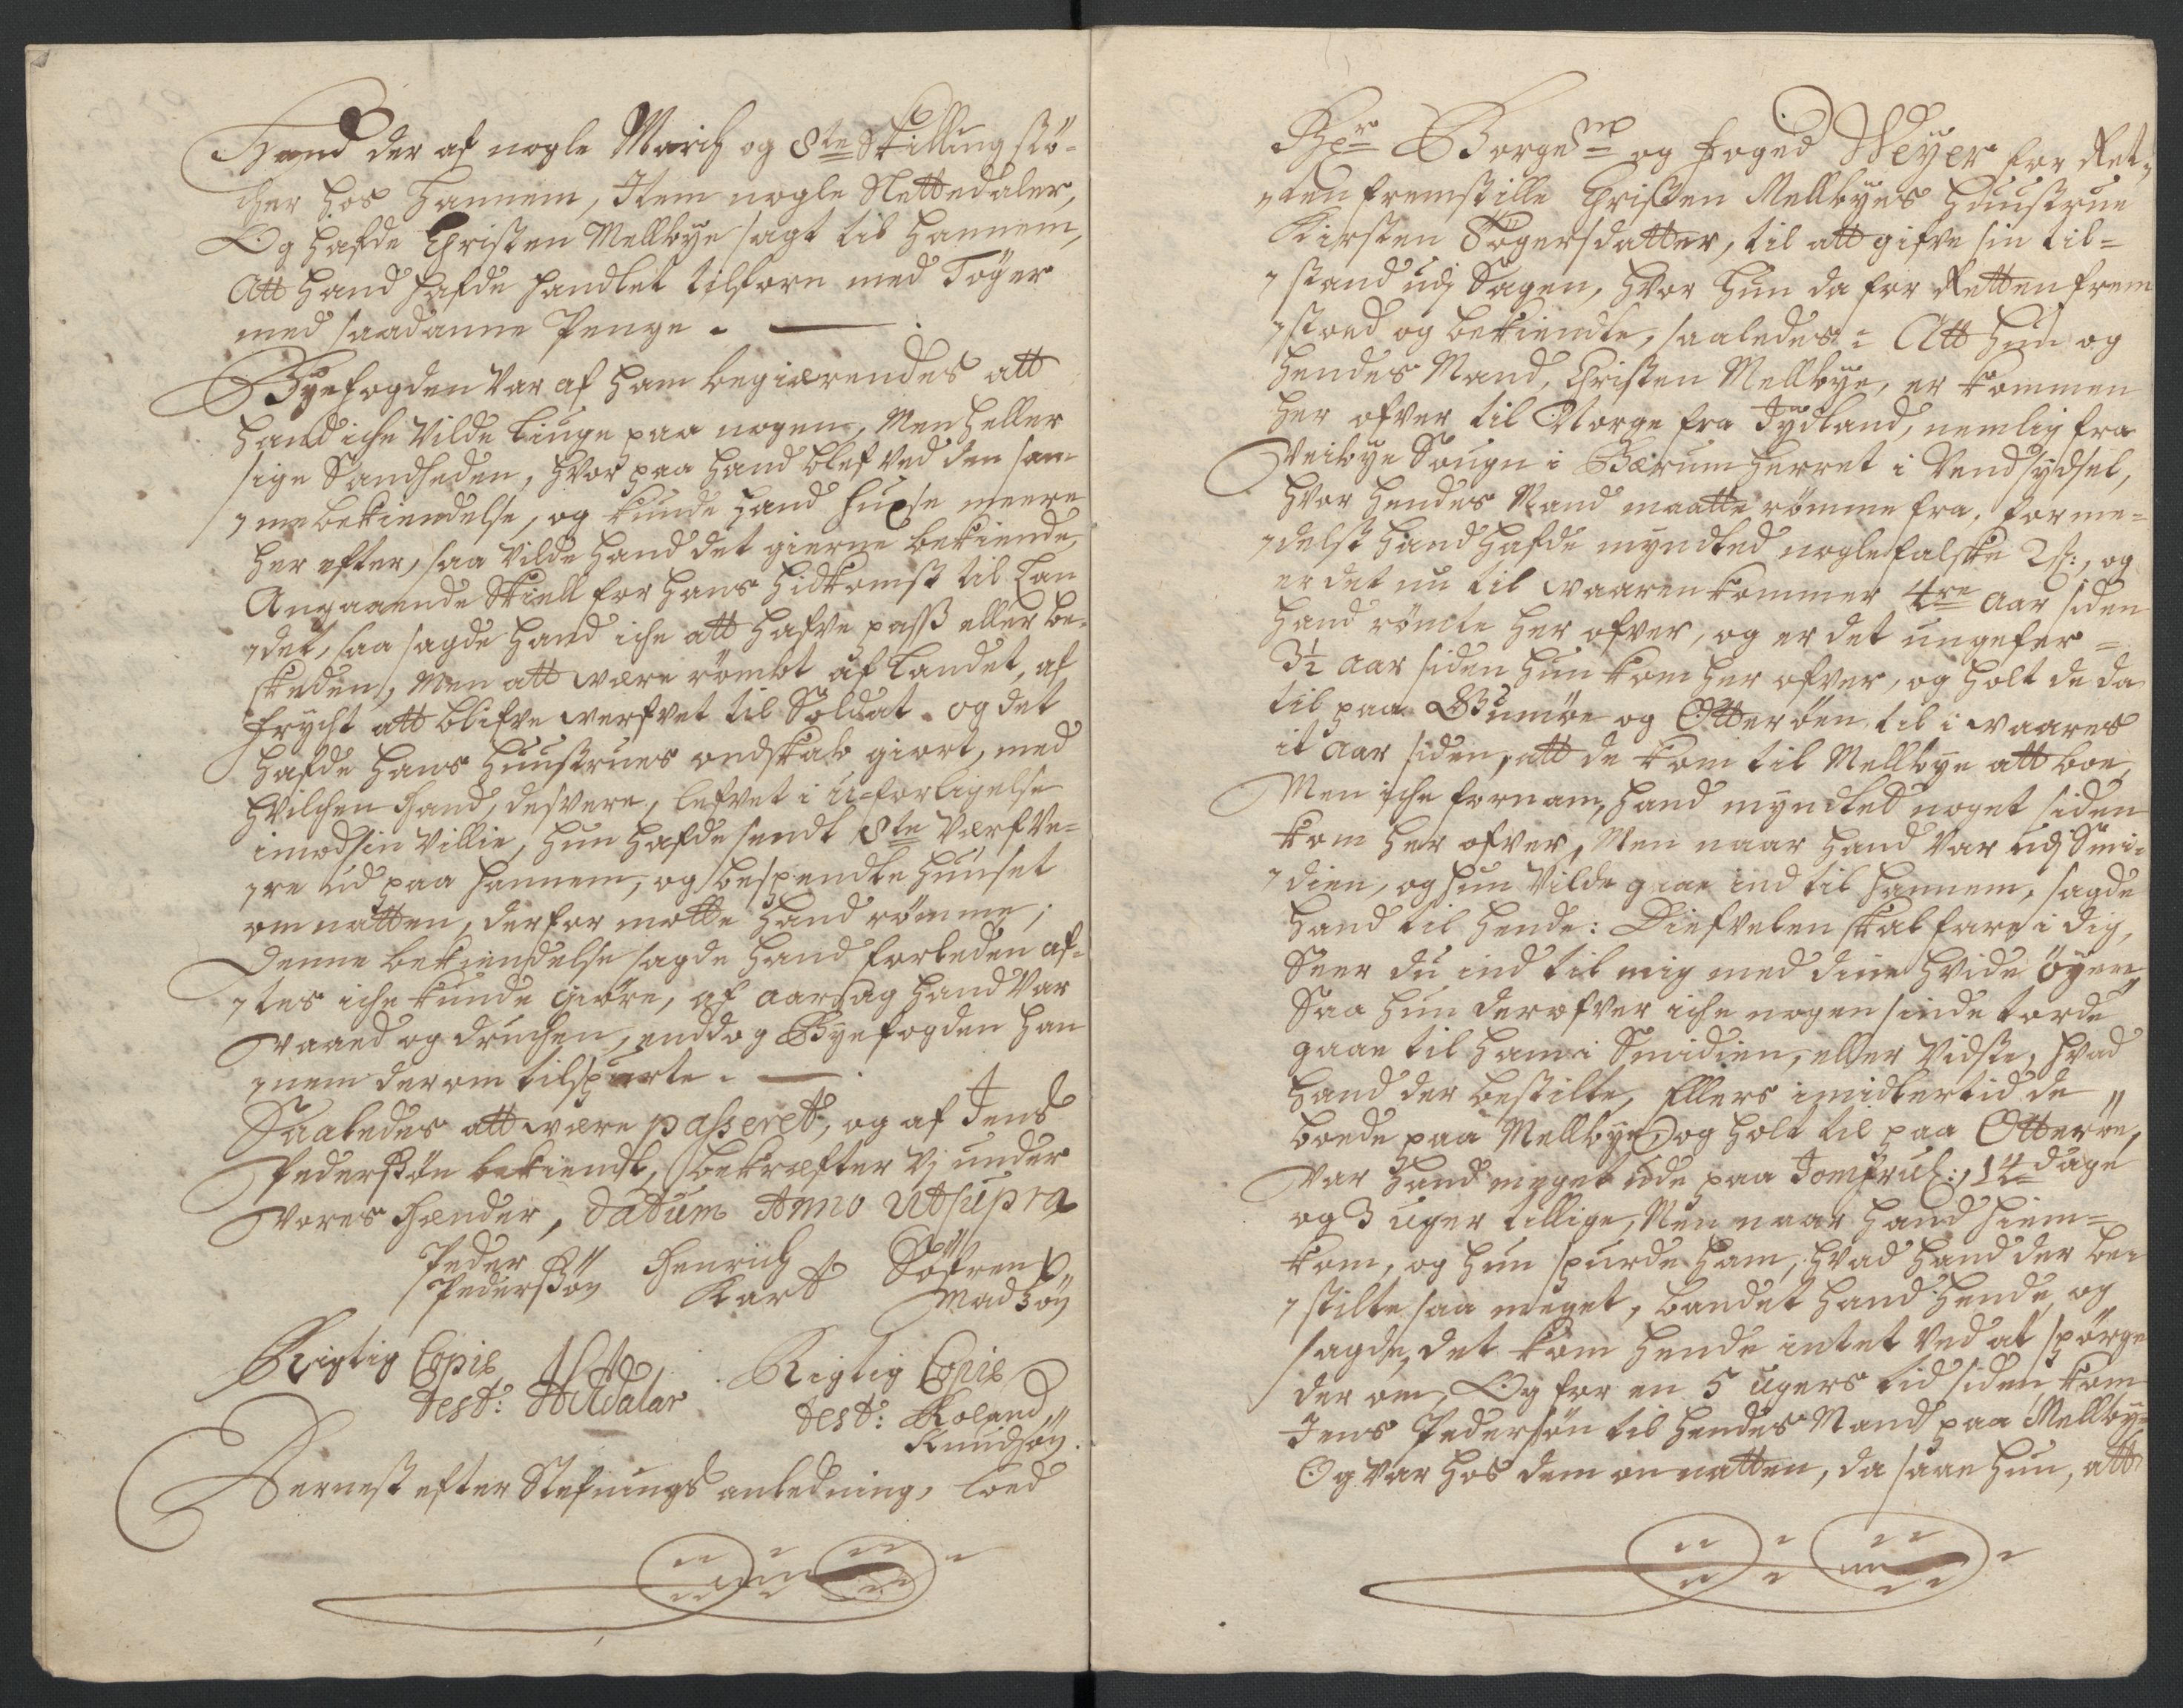 Hand der af nogle March og 8te Skilling stö-
cher hos hannem, Item nogle Slettedaler,
Og hafde Christen Mellbye sagt til hannem,
Att hand hafde handlet tilforn med Töyer
med saadanne Penge. —
Byefogden var af ham begiærendes att
hand iche vilde liuge paa nogen, Men heller
sige Sandheden, hvor paa hand blef ved den sam-
me bekiendelse, og kunde hand huxse meere
her efter, saa vilde hand det gierne bekiende,
Angaaende Skiell for hans hidkomst til Lan
det, saa sagde hand iche att hafve pass eller be-
skeden, Men att være römbt af Landet, af
frycht att blifve verfvet til Soldat. og det
hafde hans huustrues ondskab giort, med
hvilchen hand, desvere, lefvet i U-forligelse
imod sin villie, hun hafde sendt 8te værfve-
re ud paa hannem, og bespendte huuset
om natten, derfor motte hand römme;
Denne bekiendelse sagde hand forleden af-
tes iche kunde giöre, af aarsag hand var
vaaed og druchen, enddog Byefogden han
nem derom tilspurte. —
Saaledes att være passeret, og af Jens
Pedersön bekiendt, bekræfter vj under
vores hænder, Datum Anno Ut supra
Peder Henrich Söfren
Pedersön Kart Madsön
Rigtig Copie Rigtig Copie
test: test: Roland
Knudsön.
Dernest efter Stefnings anledning, loed
Borgem og foged Weyer for Ret-
ten fremstille Christen Mellbyes Huustrue
Kirsten Togersdatter, til att gifve sin til-
stand udj Sagen, hvor hun da for Retten frem
stoed og bekiendte, saaledes: Att hun og
hendes Mand, Christen Mellbye, er kommen
her ofver til Norge fra Jydland, nemlig fra
Veibye Sougn i Bærum herret i Vendsydsel,
hvor hendes Mand maatte römme fra, forme-
delst hand hafde myndted nogle falske 2s:, og
er det nu til vaaren kommer 4re aar siden
hand römte her ofver, og er det ungefer
3½ aar siden hun kom her ofver, og holt de da
til paa Gumöe og Otteröen til i vaares
it aar siden, att de kom til Mellbye att boe,
Men iche fornam, hand myndted noget siden
kom her ofver, Men naar hand var udj Smi-
dien, og hun vilde gaae ind til hannem, sagde
hand til hende: Diefvelen skal fare i dig,
Seer du ind til mig med dine hvide öyen,
Saa hun derofver iche nogen sinde torde
gaae til ham i Smidien, eller vidste, hvad
hand der bestilte, Ellers imidlertid de
boede paa Mellbye, og holt til paa Otteröe,
var hand meget ude paa Jomfrul:, 14 dage
og 3 uger tillige, Men naar hand hiem-
kom, og hun spurde ham, hvad hand der be-
stilte saa meget, bandet hand hende og
sagde, det kom hende intet ved at spörge
der om, Og for en 5 ugers tid siden kom
Jens Pedersön til hendes Mand paa Mellby-
Og var hos dem om natten, da saae hun, att